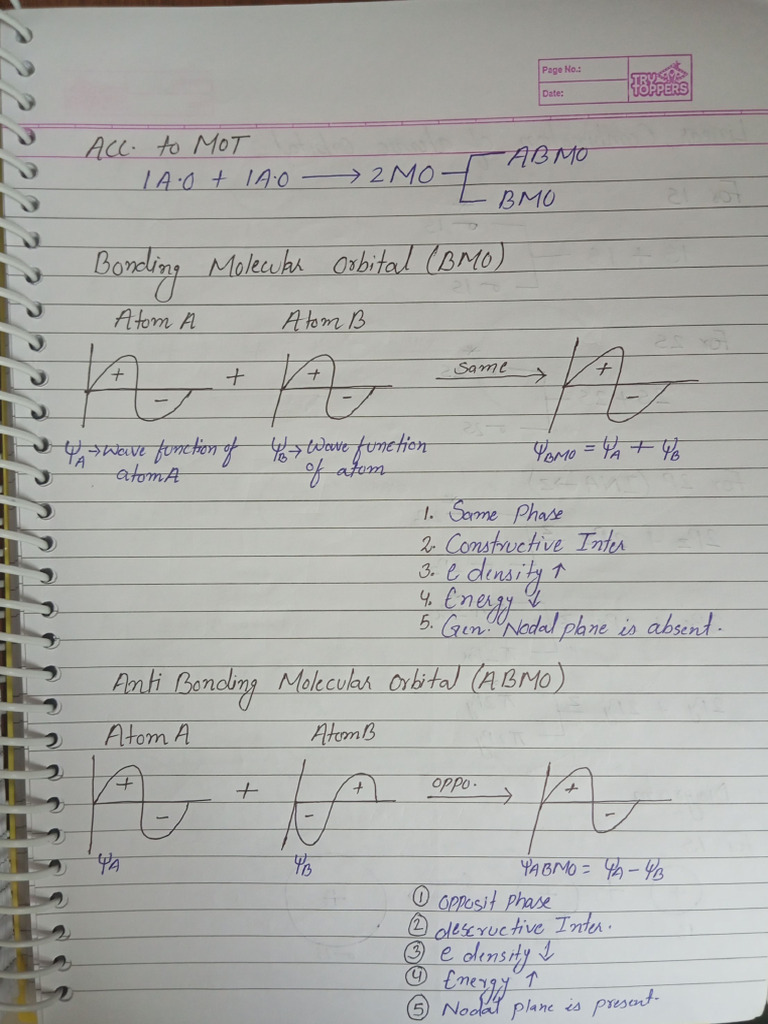 Page No.:
Date:
TRY TOPPERS
Acc. to MOT
1A.O + 1A.O ⟶ 2MO
ABMO
BMO
Bonding Molecular Orbital (BMO)
Atom A Atom B
+ - + + - Same + -
ψA → Wave function of atom A
ψB → Wave function of atom
ψBMO = ψA + ψB
1. Same Phase
2. Constructive Inter
3. e density ↑
4. Energy ↓
5. Gen. Nodal plane is absent.
Anti Bonding Molecular Orbital (ABMO)
Atom A Atom B
+ - + - + oppo. + -
ψA ψB ψABMO = ψA - ψB
① opposit phase
② desctructive Inter.
③ e density ↓
④ Energy ↑
⑤ Nodal plane is present.